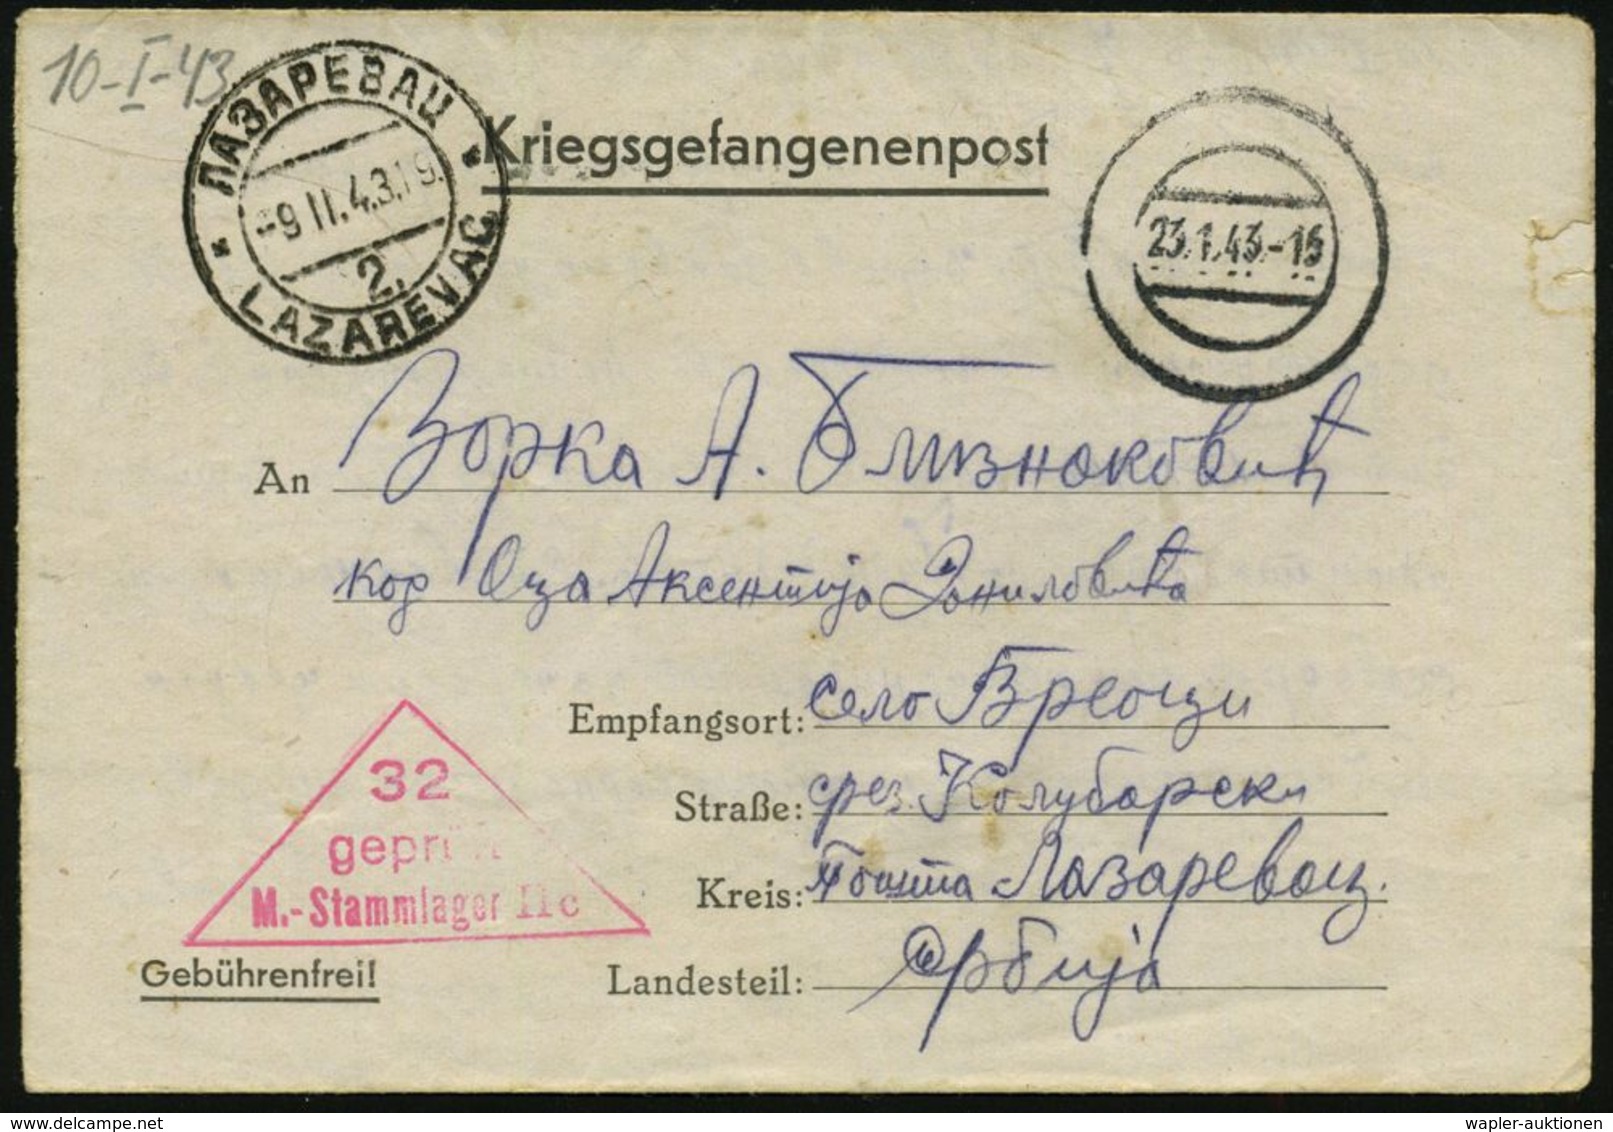 10-I-43
ЛАЗАРЕВАЦ
-9.II.43.19.
2.
LAZAREVAC
Kriegsgefangenenpost
23.1.43.-15
An Зорка А. Близнаковић
код Оца Аксентија Даниловића
Empfangsort: село Бреоци
Straße: срез. Колубарски
Kreis: Пошта Лазаревац.
Landesteil: Србија
32
geprüft
M.-Stammlager II c
Gebührenfrei!
wapler-auktionen